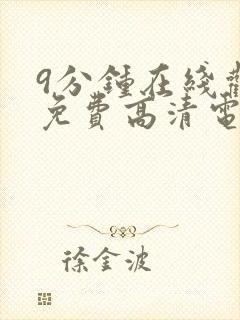 9分鍾在綫觀
免費高清電
徐金波